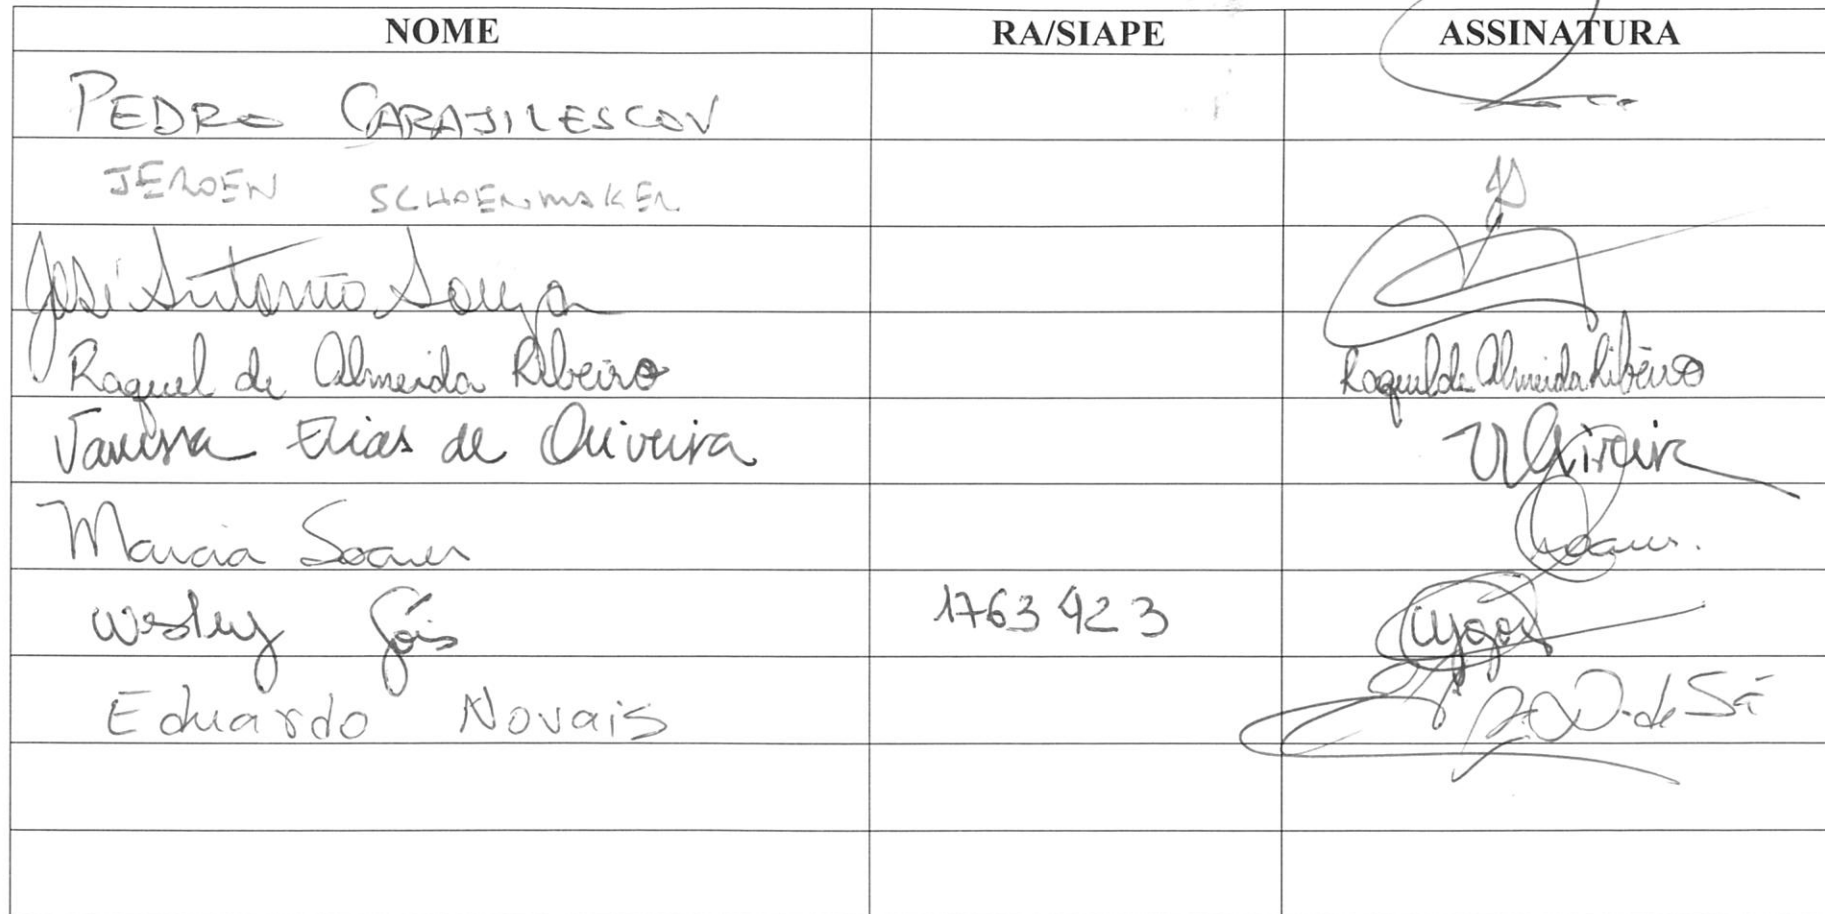 NOME RA/SIAPE ASSINATURA
PEDRO CARAJILESCOV
JEROEN SCHOENMAKER
José Antonio Souza
Raquel de Almeida Ribeiro Raquel de Almeida Ribeiro
Vanessa Elias de Oliveira VOliveira
Marcia Soares Soares.
Wesley Góis 1763423 wgois
Eduardo Novais de Sá